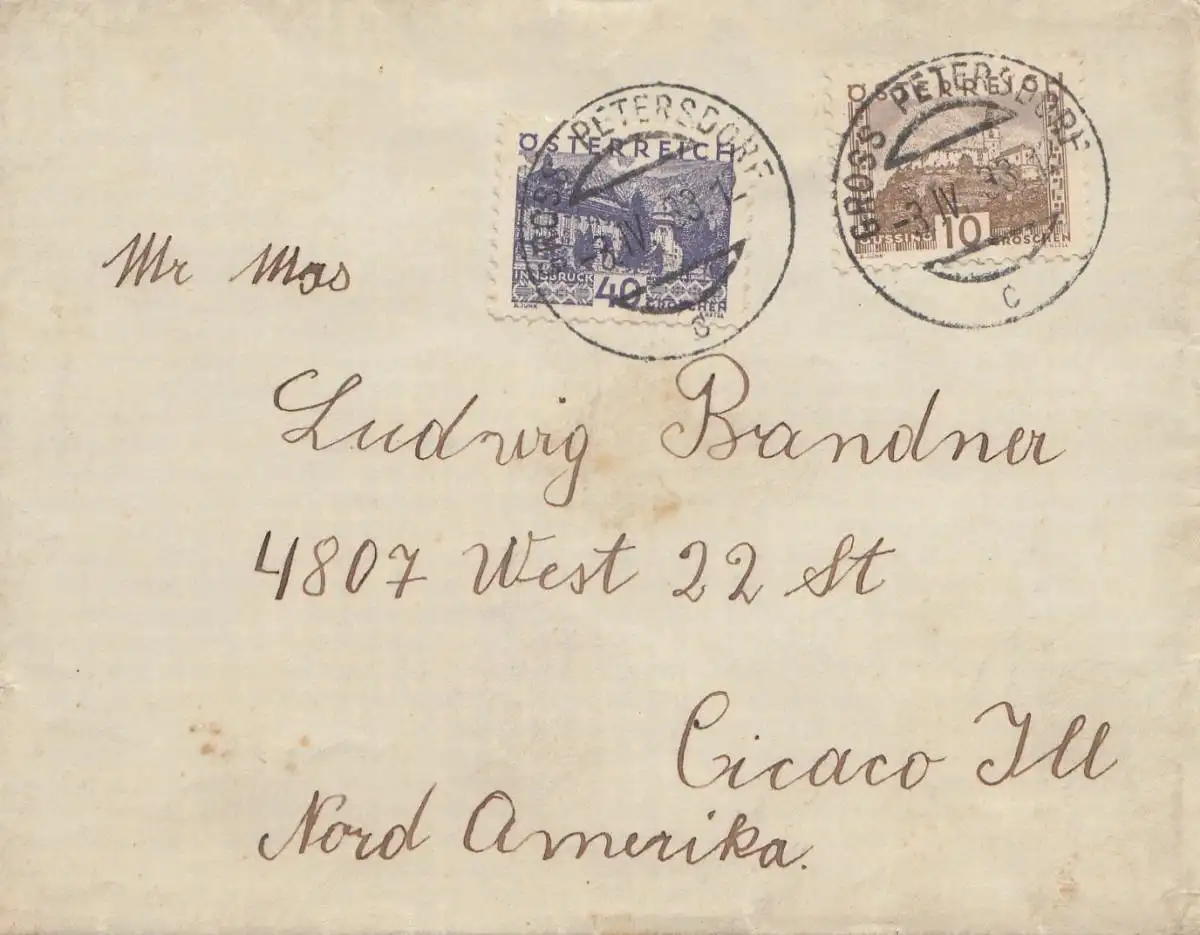 GROSS PETERSDORF
-3.IV.33
C
ÖSTERREICH
INNSBRUCK 40 GROSCHEN
GROSS PETERSDORF
-3.IV.33
C
ÖSTERREICH
GÜSSING 10 GROSCHEN
Mr Mas
Ludwig Bandner
4807 West 22 St
Cicaco Ill
Nord Amerika.